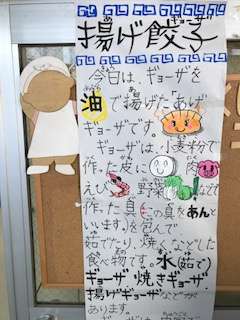 揚げ餃子
ギョーザ
今日は、ギョーザを
油で揚げた「あげ
ギョーザです。
ギョーザは、小麦粉で
作った皮に 肉
えび 野菜などで
作った具(この具をあんと
いいます)を包んで
茹でたり、焼くなどした
食べ物です。水(茹で)
ギョーザ、焼きギョーザ
揚げギョーザなどが
あります。